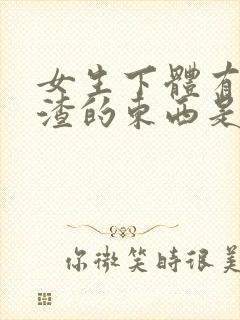 女生下體有
渣的東西是
你微笑時很美